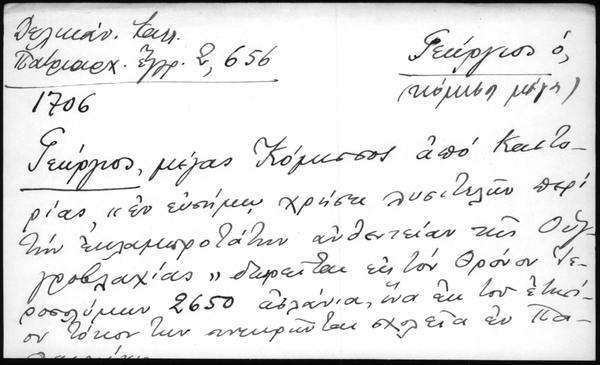 Δελικάν. Καλλ.
Πατριαρχ. Ἔγγρ. 2, 656
Γεώργιος ὁ,
(κόμισο μέγα)
1706
Γεώργιος, μέγας Κόμισσος ἀπό Καστο-
ρίας, "ἐν εὐσήμῳ χρήσει λυσιτελῶν περί
τήν ἐκλαμπροτάτην αὐθεντείαν τῆς Οὑγ-
γροβλαχίας" δωρεῖται εἰς τόν Θρόνον Ἱε-
ροσολύμων 2650 ἀσλάνια, ἵνα ἐκ τοῦ ἐτησί-
ου τόκου των συγκρῆται σχολεῖα ἐν Πα-